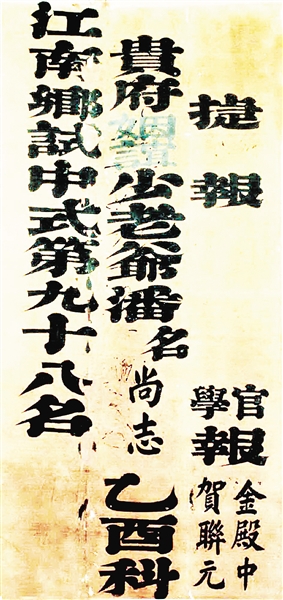 捷報
貴府少老爺潘名尚志乙酉科
江南鄉試中式第九十八名
官學報
金殿中
賀聯元